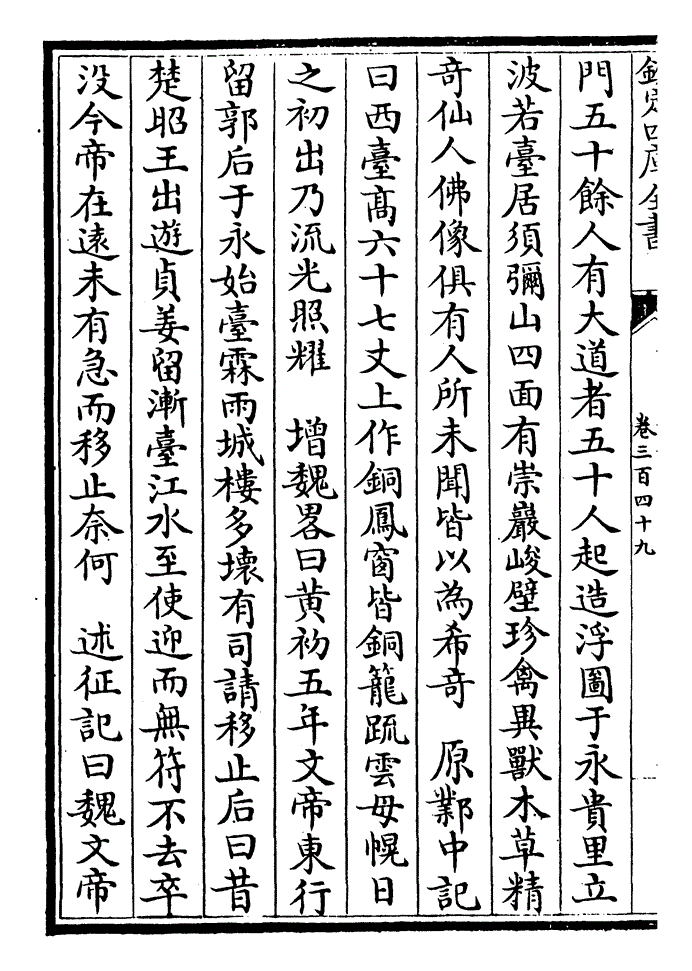 欽定四庫全書
卷三百四十九
門五十餘人有大道者五十人起造浮圖于永貴里立
波若臺居須彌山四面有崇巖峻壁珍禽異獸木草精
奇仙人佛像俱有人所未聞皆以為希奇　原鄴中記
曰西臺髙六十七丈上作銅鳳窗皆銅籠疏雲母幌日
之初出乃流光照耀　增魏畧曰黄初五年文帝東行
留郭后于永始臺霖雨城樓多壊有司請移止后曰昔
楚昭王出遊貞姜留漸臺江水至使迎而無符不去卒
没今帝在遠未有急而移止奈何　述征記曰魏文帝